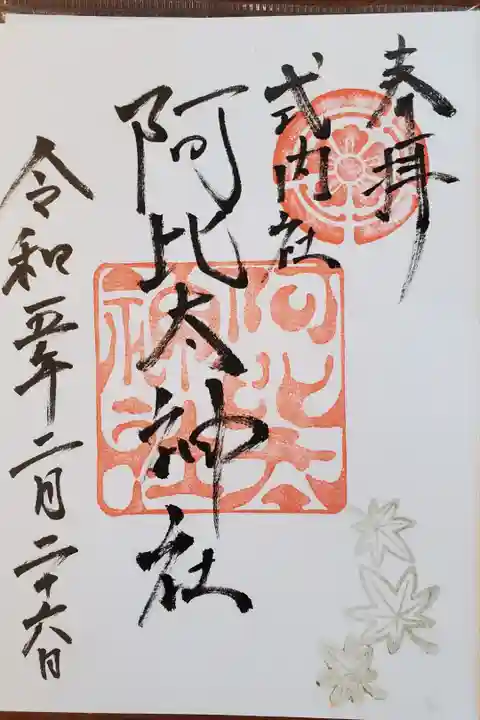 奉拝
式内社
阿比太神社
阿比太神社
令和五年二月二十六日